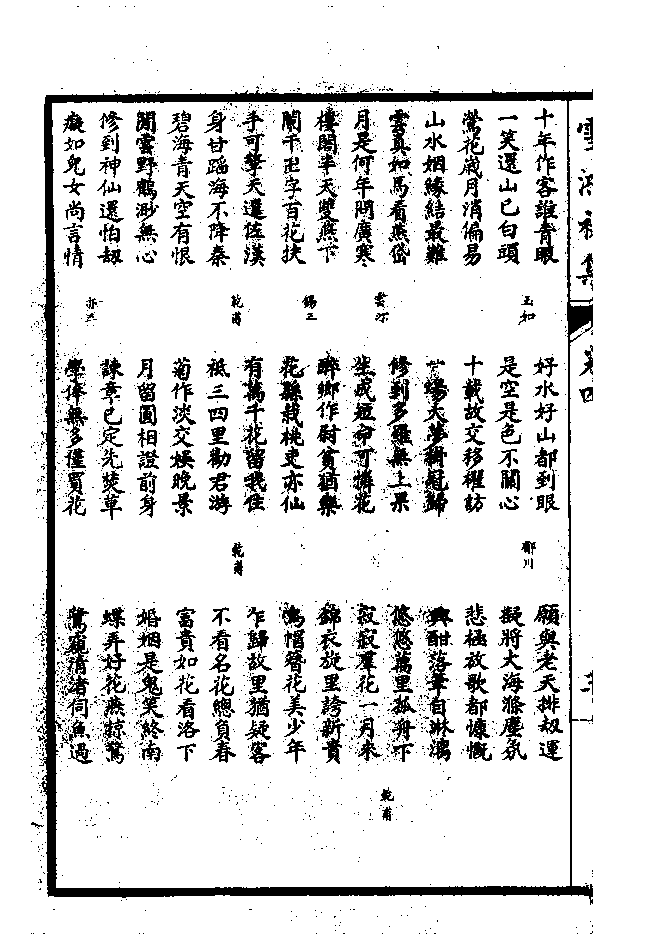 卷四
十年作客誰青眼
一笑還山已白頭
玉如
鶯花歲月消偏易
山水姻緣結最難
雲真如馬看燕岱
月是何年問廣寒
樓閣半天雙燕下
闌干卍字百花扶
錫三
手可擎天還佐漢
身甘蹈海不降秦
乾甫
碧海青天空有恨
閒雲野鶴渺無心
修到神仙還怕劫
癡如兒女尚言情
亦三
好水好山都到眼
是空是色不關心
鄰川
十載故交移櫂訪
場大夢掛冠歸
修到多羅無上果
生成短命可憐花
醉鄉作尉貧猶樂
花縣栽桃吏亦仙
有萬千花留我住
祗三四里勸君游
乾甫
菊作淡交娛晚景
月留圓相證前身
諫章已定先焚草
學俸無多僅買花
願與老天排劫運
擬將大海滌塵氛
悲極放歌都慷慨
興酣落筆自淋漓
悠悠萬里孤舟下
寂寂羣花一月來
乾甫
錦衣旋里誇新貴
帽簪花美少年
乍歸故里猶疑客
不看名花總負春
富貴如花看洛下
婚姻是鬼哭終南
蝶弄好花燕掠鶯
鷺窺清渚伺魚過